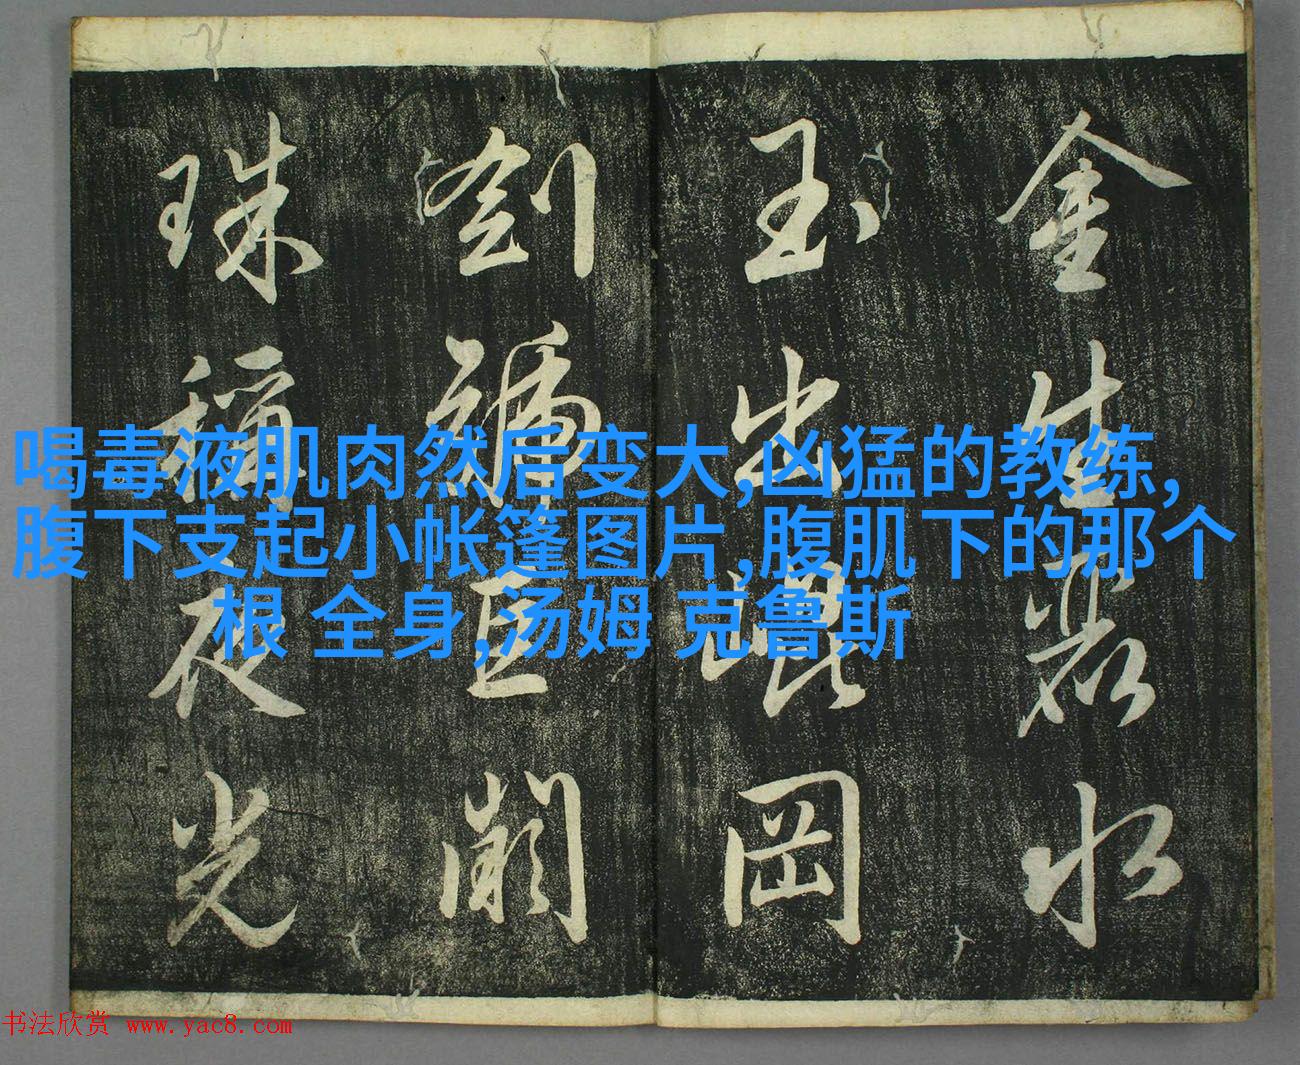 金生麗水
玉出崐岡
劍號巨闕
珠稱夜光
喝毒液肌肉然后变大,凶猛的教练,
腹下支起小帐篷图片,腹肌下的那个
根 全身,汤姆 克鲁斯
书法欣赏 www.yac8.com